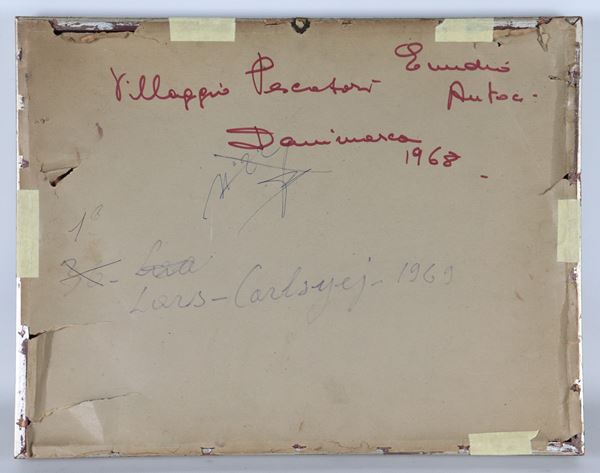 Villaggio Pescatori Emidio
Antoci.
Danimarca
1968.
1ª
Lars-Carlsvej-1969